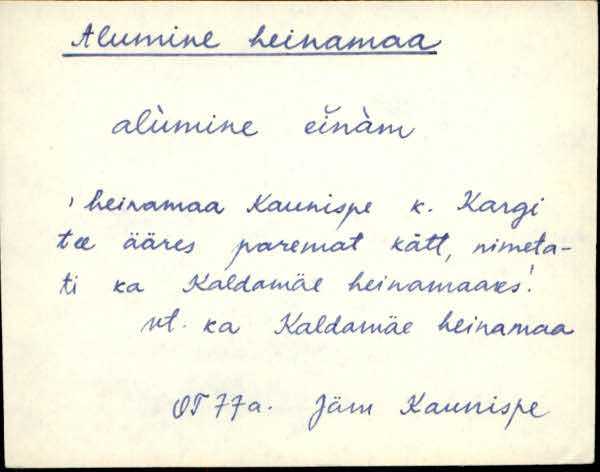 Alumine heinamaa
alùmine eĭnàm
' heinamaa Kaunispe k. Kargi
tee ääres paremat kätt, nimeta-
ti ka Kaldamäe heinamaaks'.
vt. ka Kaldamäe heinamaa
OT 77a. Jäm Kaunispe